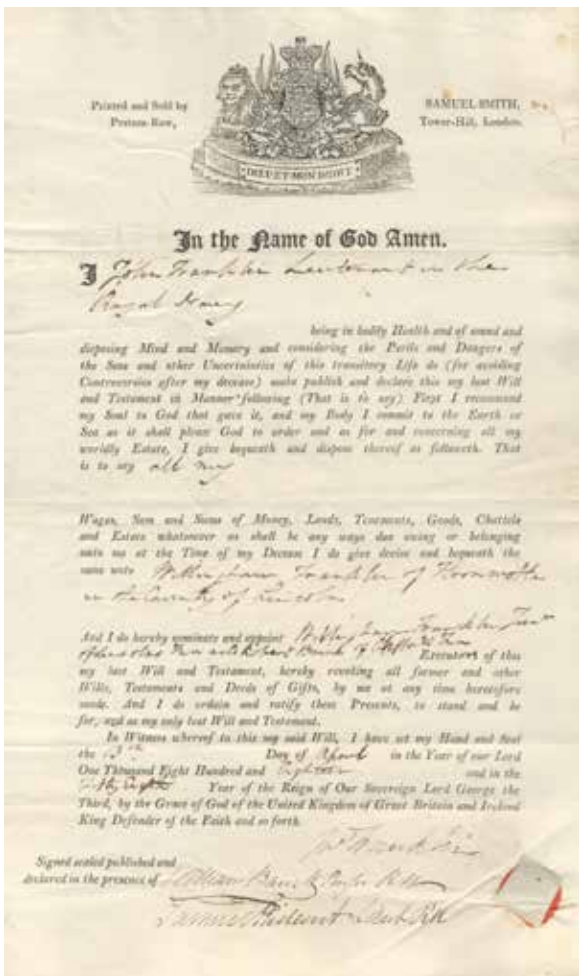 Printed and Sold by
Postern-Row,
SAMUEL SMITH,
Tower-Hill, London.
DIEU ET MON DROIT
In the Name of God Amen.
I John Franklin Lieutenant in the
Royal Navy
being in bodily Health and of sound and
disposing Mind and Memory and considering the Perils and Dangers of
the Seas and other Uncertainties of this transitory Life do (for avoiding
Controversies after my decease) make publish and declare this my last Will
and Testament in Manner following (That is to say) First I recommend
my Soul to God that gave it, and my Body I commit to the Earth or
Sea as it shall please God to order and as for and concerning all my
worldly Estate, I give bequeath and dispose thereof as followeth. That
is to say all my
Wages, Sum and Sums of Money, Lands, Tenements, Goods, Chattels
and Estate whatsoever as shall be any ways due owing or belonging
unto me at the Time of my Decease I do give devise and bequeath the
same unto Willingham Franklin of
in the County of Lincoln
And I do hereby nominate and appoint Willingham Franklin
of Executors of this
my last Will and Testament, hereby revoking all former and other
Wills, Testaments and Deeds of Gifts, by me at any time heretofore
made. And I do ordain and ratify these Presents, to stand and be
for, and as my only last Will and Testament.
In Witness whereof to this my said Will, I have set my Hand and Seal
the Day of April in the Year of our Lord
One Thousand Eight Hundred and Eighteen and in the
Year of the Reign of Our Sovereign Lord George the
Third, by the Grace of God of the United Kingdom of Great Britain and Ireland
King Defender of the Faith and so forth.
Franklin
Signed sealed published and
declared in the presence of William
Samuel